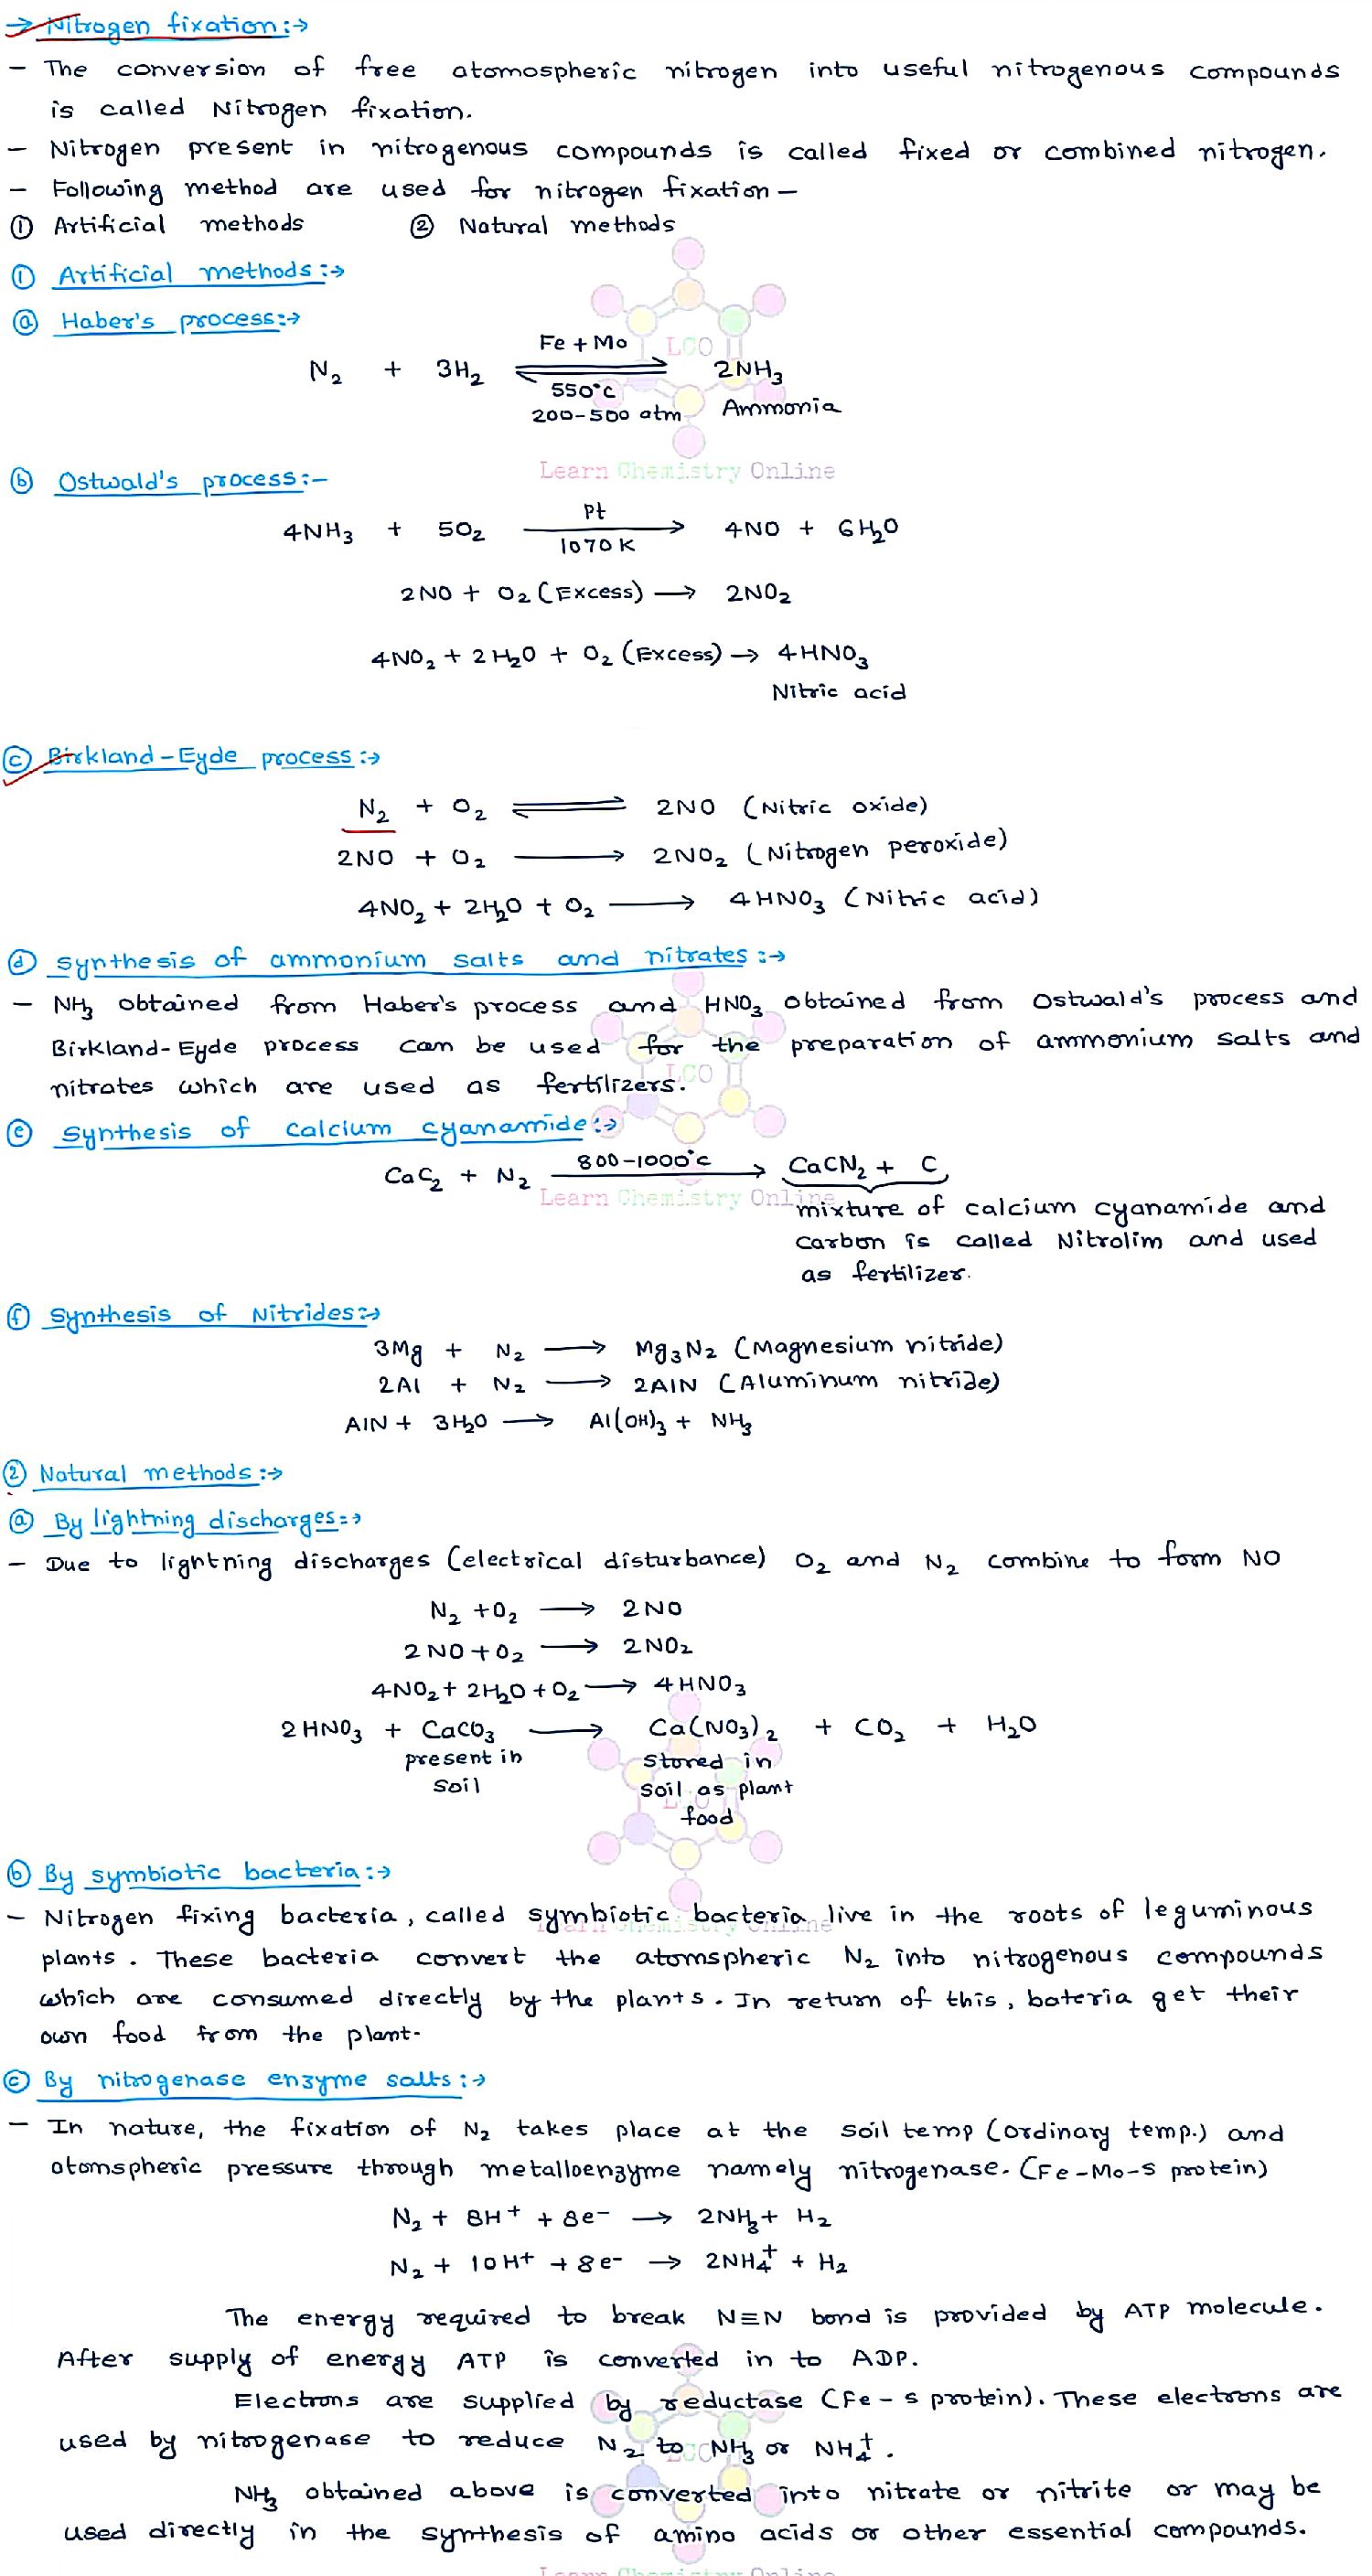 → Nitrogen fixation:→
– The conversion of free atomospheric nitrogen into useful nitrogenous compounds
is called Nitrogen fixation.
– Nitrogen present in nitrogenous compounds is called fixed or combined nitrogen.
– Following method are used for nitrogen fixation –
① Artificial methods ② Natural methods
① Artificial methods:→
ⓐ Haber's process:→
Fe + Mo
LCO
N₂ + 3H₂ ⇌ 2NH₃
550°C
200-500 atm Ammonia
Learn Chemistry Online
ⓑ Ostwald's process:–
Pt
4NH₃ + 5O₂ → 4NO + 6H₂O
1070 K
2NO + O₂ (Excess) → 2NO₂
4NO₂ + 2H₂O + O₂ (Excess) → 4HNO₃
Nitric acid
ⓒ Birkland-Eyde process:→
N₂ + O₂ ⇌ 2NO (Nitric oxide)
2NO + O₂ → 2NO₂ (Nitrogen peroxide)
4NO₂ + 2H₂O + O₂ → 4HNO₃ (Nitric acid)
ⓓ synthesis of ammonium salts and nitrates:→
– NH₃ obtained from Haber's process and HNO₃ obtained from Ostwald's process and
Birkland-Eyde process can be used for the preparation of ammonium salts and
nitrates which are used as fertilizers.
LCO
ⓔ synthesis of calcium cyanamide:→
800-1000°C
CaC₂ + N₂ → CaCN₂ + C
Learn Chemistry Online
mixture of calcium cyanamide and
carbon is called Nitrolim and used
as fertilizer.
ⓕ synthesis of Nitrides:→
3Mg + N₂ → Mg₃N₂ (Magnesium nitride)
2Al + N₂ → 2AlN (Aluminum nitride)
AlN + 3H₂O → Al(OH)₃ + NH₃
② Natural methods:→
ⓐ By lightning discharges:→
– Due to lightning discharges (electrical disturbance) O₂ and N₂ combine to form NO
N₂ + O₂ → 2NO
2NO + O₂ → 2NO₂
4NO₂ + 2H₂O + O₂ → 4HNO₃
2HNO₃ + CaCO₃ → Ca(NO₃)₂ + CO₂ + H₂O
present in stored in
soil soil as plant
food
ⓑ By symbiotic bacteria:→
– Nitrogen fixing bacteria, called symbiotic bacteria live in the roots of leguminous
Learn Chemistry Online
plants. These bacteria convert the atomspheric N₂ into nitrogenous compounds
which are consumed directly by the plants. In return of this, bateria get their
own food from the plant.
ⓒ By nitrogenase enzyme salts:→
– In nature, the fixation of N₂ takes place at the soil temp (ordinary temp.) and
atomspheric pressure through metalloenzyme namely nitrogenase. (Fe-Mo-S protein)
N₂ + 8H⁺ + 8e⁻ → 2NH₃ + H₂
N₂ + 10H⁺ + 8e⁻ → 2NH₄⁺ + H₂
The energy required to break N≡N bond is provided by ATP molecule.
After supply of energy ATP is converted in to ADP.
Electrons are supplied by reductase (Fe-S protein). These electrons are
used by nitrogenase to reduce N₂ to NH₃ or NH₄⁺.
NH₃ obtained above is converted into nitrate or nitrite or may be
used directly in the synthesis of amino acids or other essential compounds.
Learn Chemistry Online